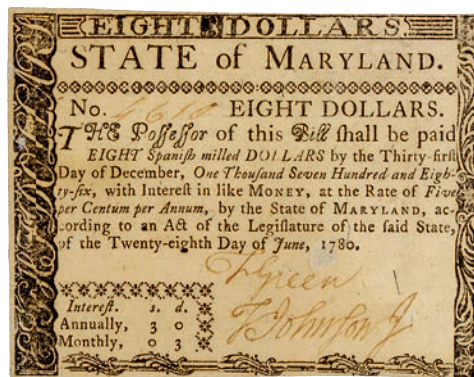 EIGHT DOLLARS.
STATE of MARYLAND.
No. EIGHT DOLLARS.
THE Poſſeſſor of this Bill ſhall be paid
EIGHT Spaniſh milled DOLLARS by the Thirty-firſt
Day of December, One Thouſand Seven Hundred and Eigh-
ty-ſix, with Intereſt in like MONEY, at the Rate of Five
per Centum per Annum, by the State of MARYLAND, ac-
cording to an Act of the Legiſlature of the ſaid State,
of the Twenty-eighth Day of June, 1780.
T Green
T Johnſon Jr
Intereſt. s. d.
Annually, 3 0
Monthly, 0 3